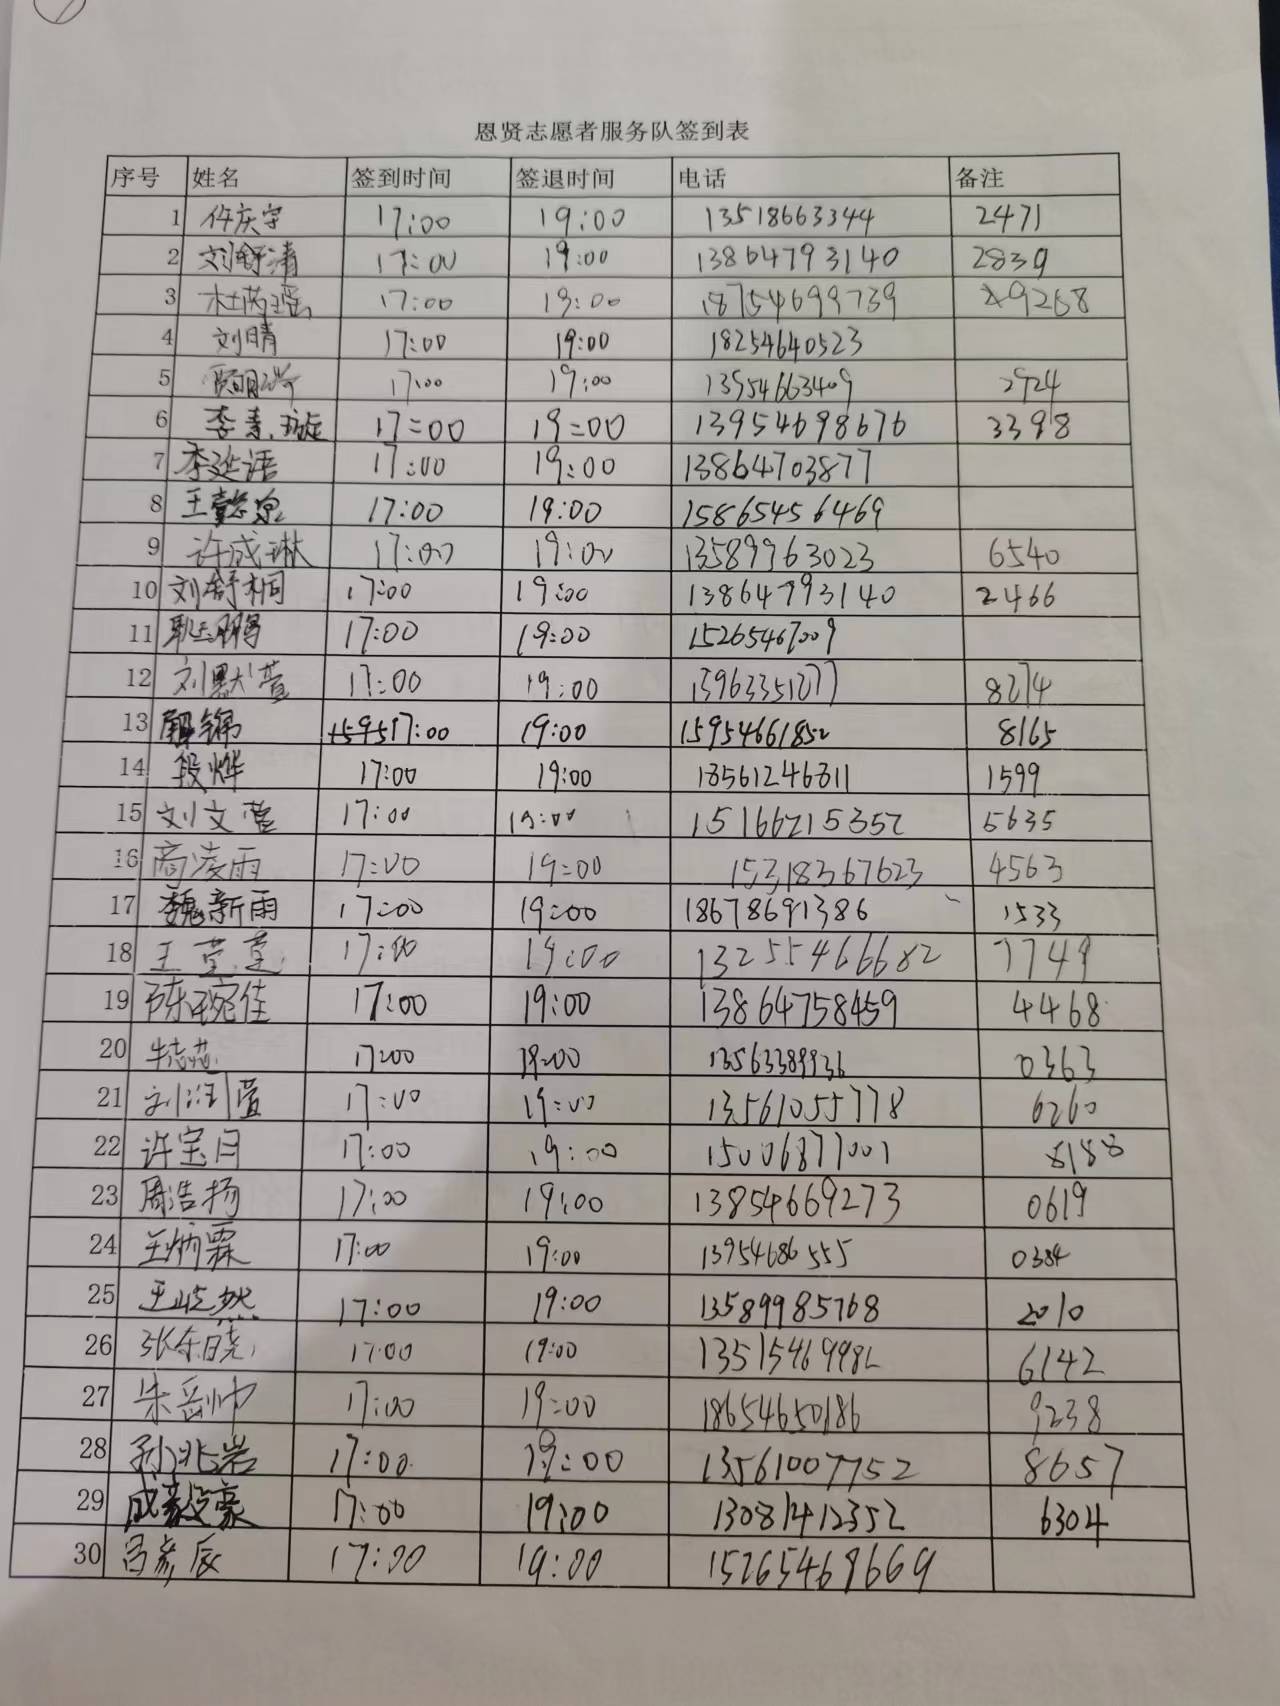 恩贤志愿者服务队签到表
序号 姓名 签到时间 签退时间 电话 备注
1 仵庆宇 17:00 19:00 13518663344 2471
2 刘舒清 17:00 19:00 13864793140 2839
3 杜芮瑶 17:00 19:00 18754699739 9268
4 刘晴 17:00 19:00 18254640523
5 17:00 19:00 13954663409 2924
6 李素璇 17:00 19:00 13954698676 3398
7 李延语 17:00 19:00 13864703877
8 王懿泉 17:00 19:00 15865456469
9 许成琳 17:00 19:00 13589963023 6540
10 刘舒桐 17:00 19:00 13864793140 2466
11 17:00 19:00 15265467009
12 刘默萱 17:00 19:00 15963351277 8274
13 17:00 19:00 15954661852 8165
14 段烨 17:00 19:00 18561246811 1599
15 刘文萱 17:00 19:00 15166215352 5635
16 商凌雨 17:00 19:00 15318367623 4563
17 魏新雨 17:00 19:00 18678691386 1533
18 王萱萱 17:00 19:00 13255466682 7749
19 陈琬佳 17:00 19:00 13864758459 4468
20 17:00 19:00 13563389936 0363
21 刘润萱 17:00 19:00 13561055778 6260
22 许宝月 17:00 19:00 15006877001 8188
23 周浩扬 17:00 19:00 13854669273 0619
24 王炳霖 17:00 19:00 13954686555 0384
25 王屹然 17:00 19:00 13589985768 2010
26 张东晓 17:00 19:00 13515469982 6142
27 朱岳帅 17:00 19:00 18654650186 9238
28 孙兆岩 17:00 19:00 13561007752 8657
29 成毅豪 17:00 19:00 13081412352 6304
30 吕彦辰 17:00 19:00 15265468669